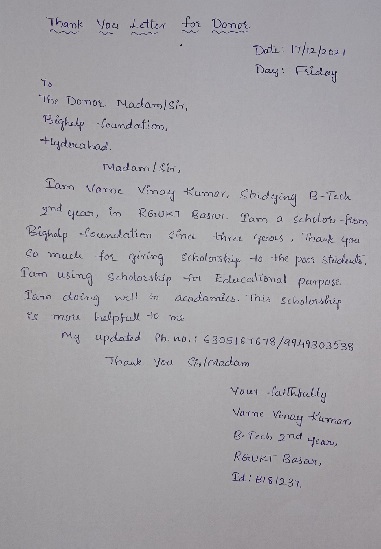 Thank You Letter for Donor.
Date: 17/12/2021
Day: Friday
To
The Donor Madam/Sir,
Bighelp foundation,
Hyderabad.
Madam/Sir,
I am Varne Vinay Kumar, Studying B-Tech
2nd year, in RGUKT Basar. I am a scholar from
Bighelp foundation since three years, Thank you
so much for giving scholarship to the poor students.
I am using scholarship for Educational purpose.
I am doing well in acadamics. This scholarship
is more helpfull to me
My updated Ph. no.: /9949303538
Thank You Sir/Madam
Your faithfully
Varne Vinay Kumar,
B-Tech 2nd year,
RGUKT Basar,
Id: